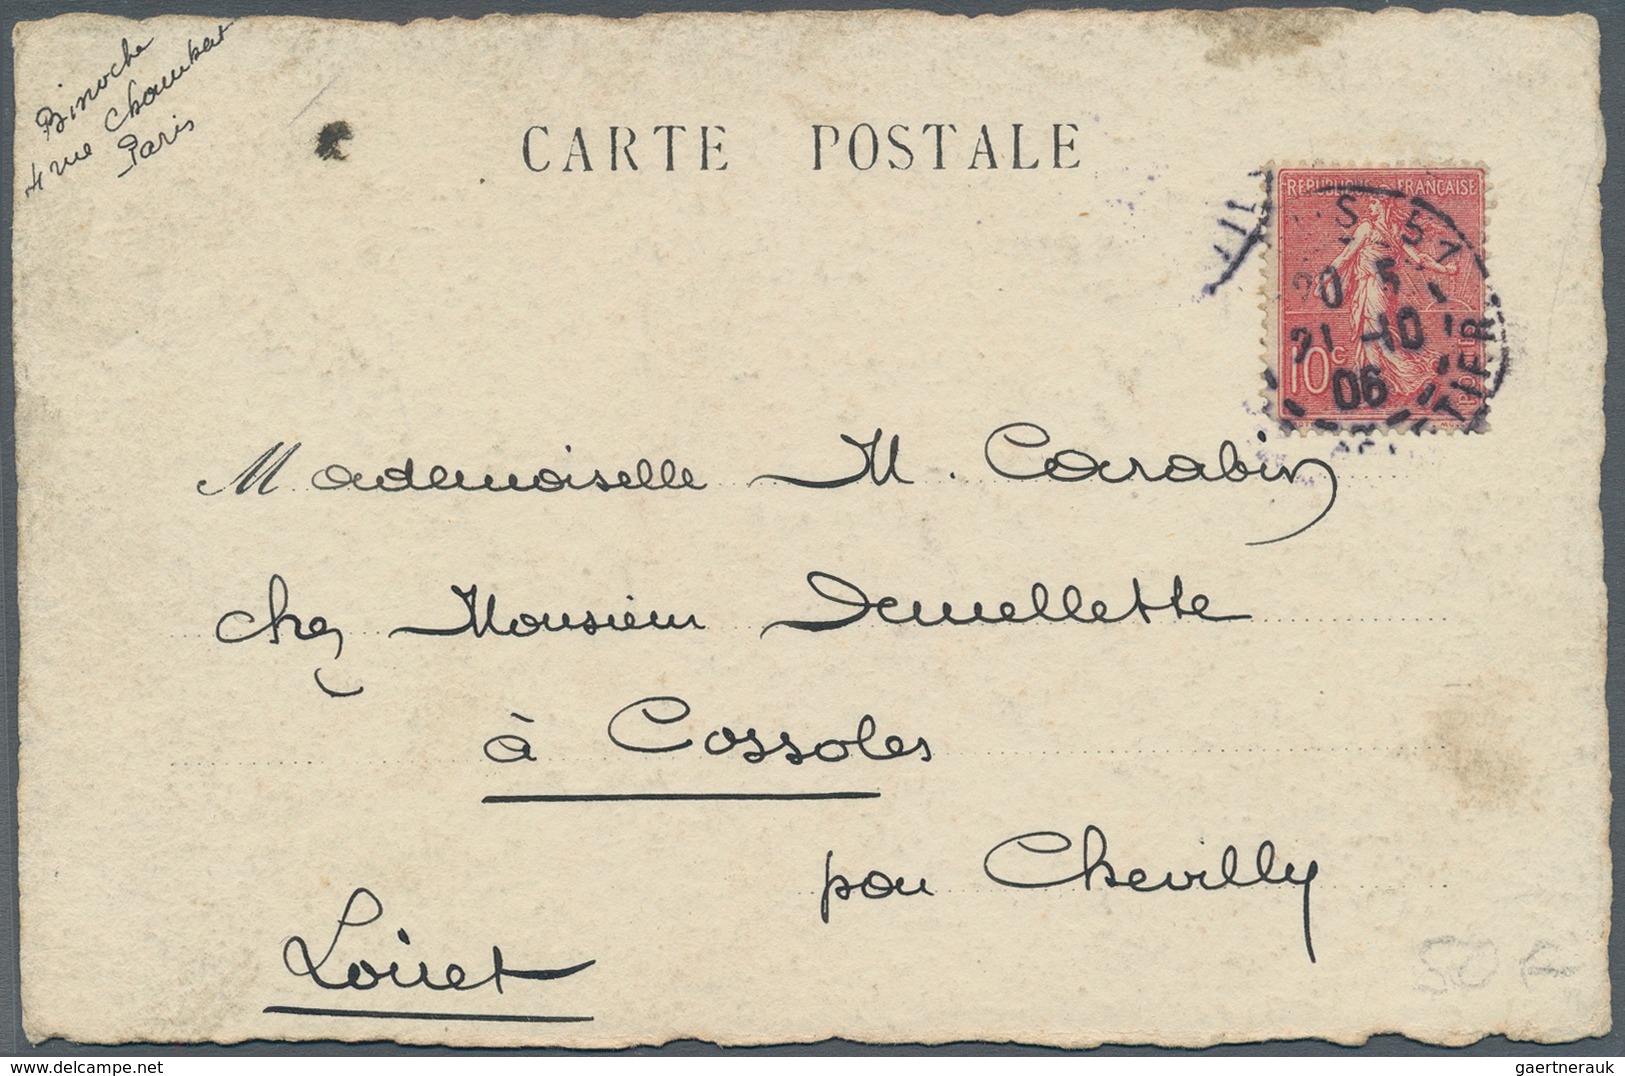 Binoche
4 rue Chambat
Paris
CARTE POSTALE
REPUBLIQUE FRANÇAISE
S. 57
20 5
21 -10
06
10c
POSTES
TIER
Mademoiselle M. Carabin
chez Monsieur Demellette
à Cossoles
par Chevilly
Loiret
50 F
delcampe.net
gaertnerauk